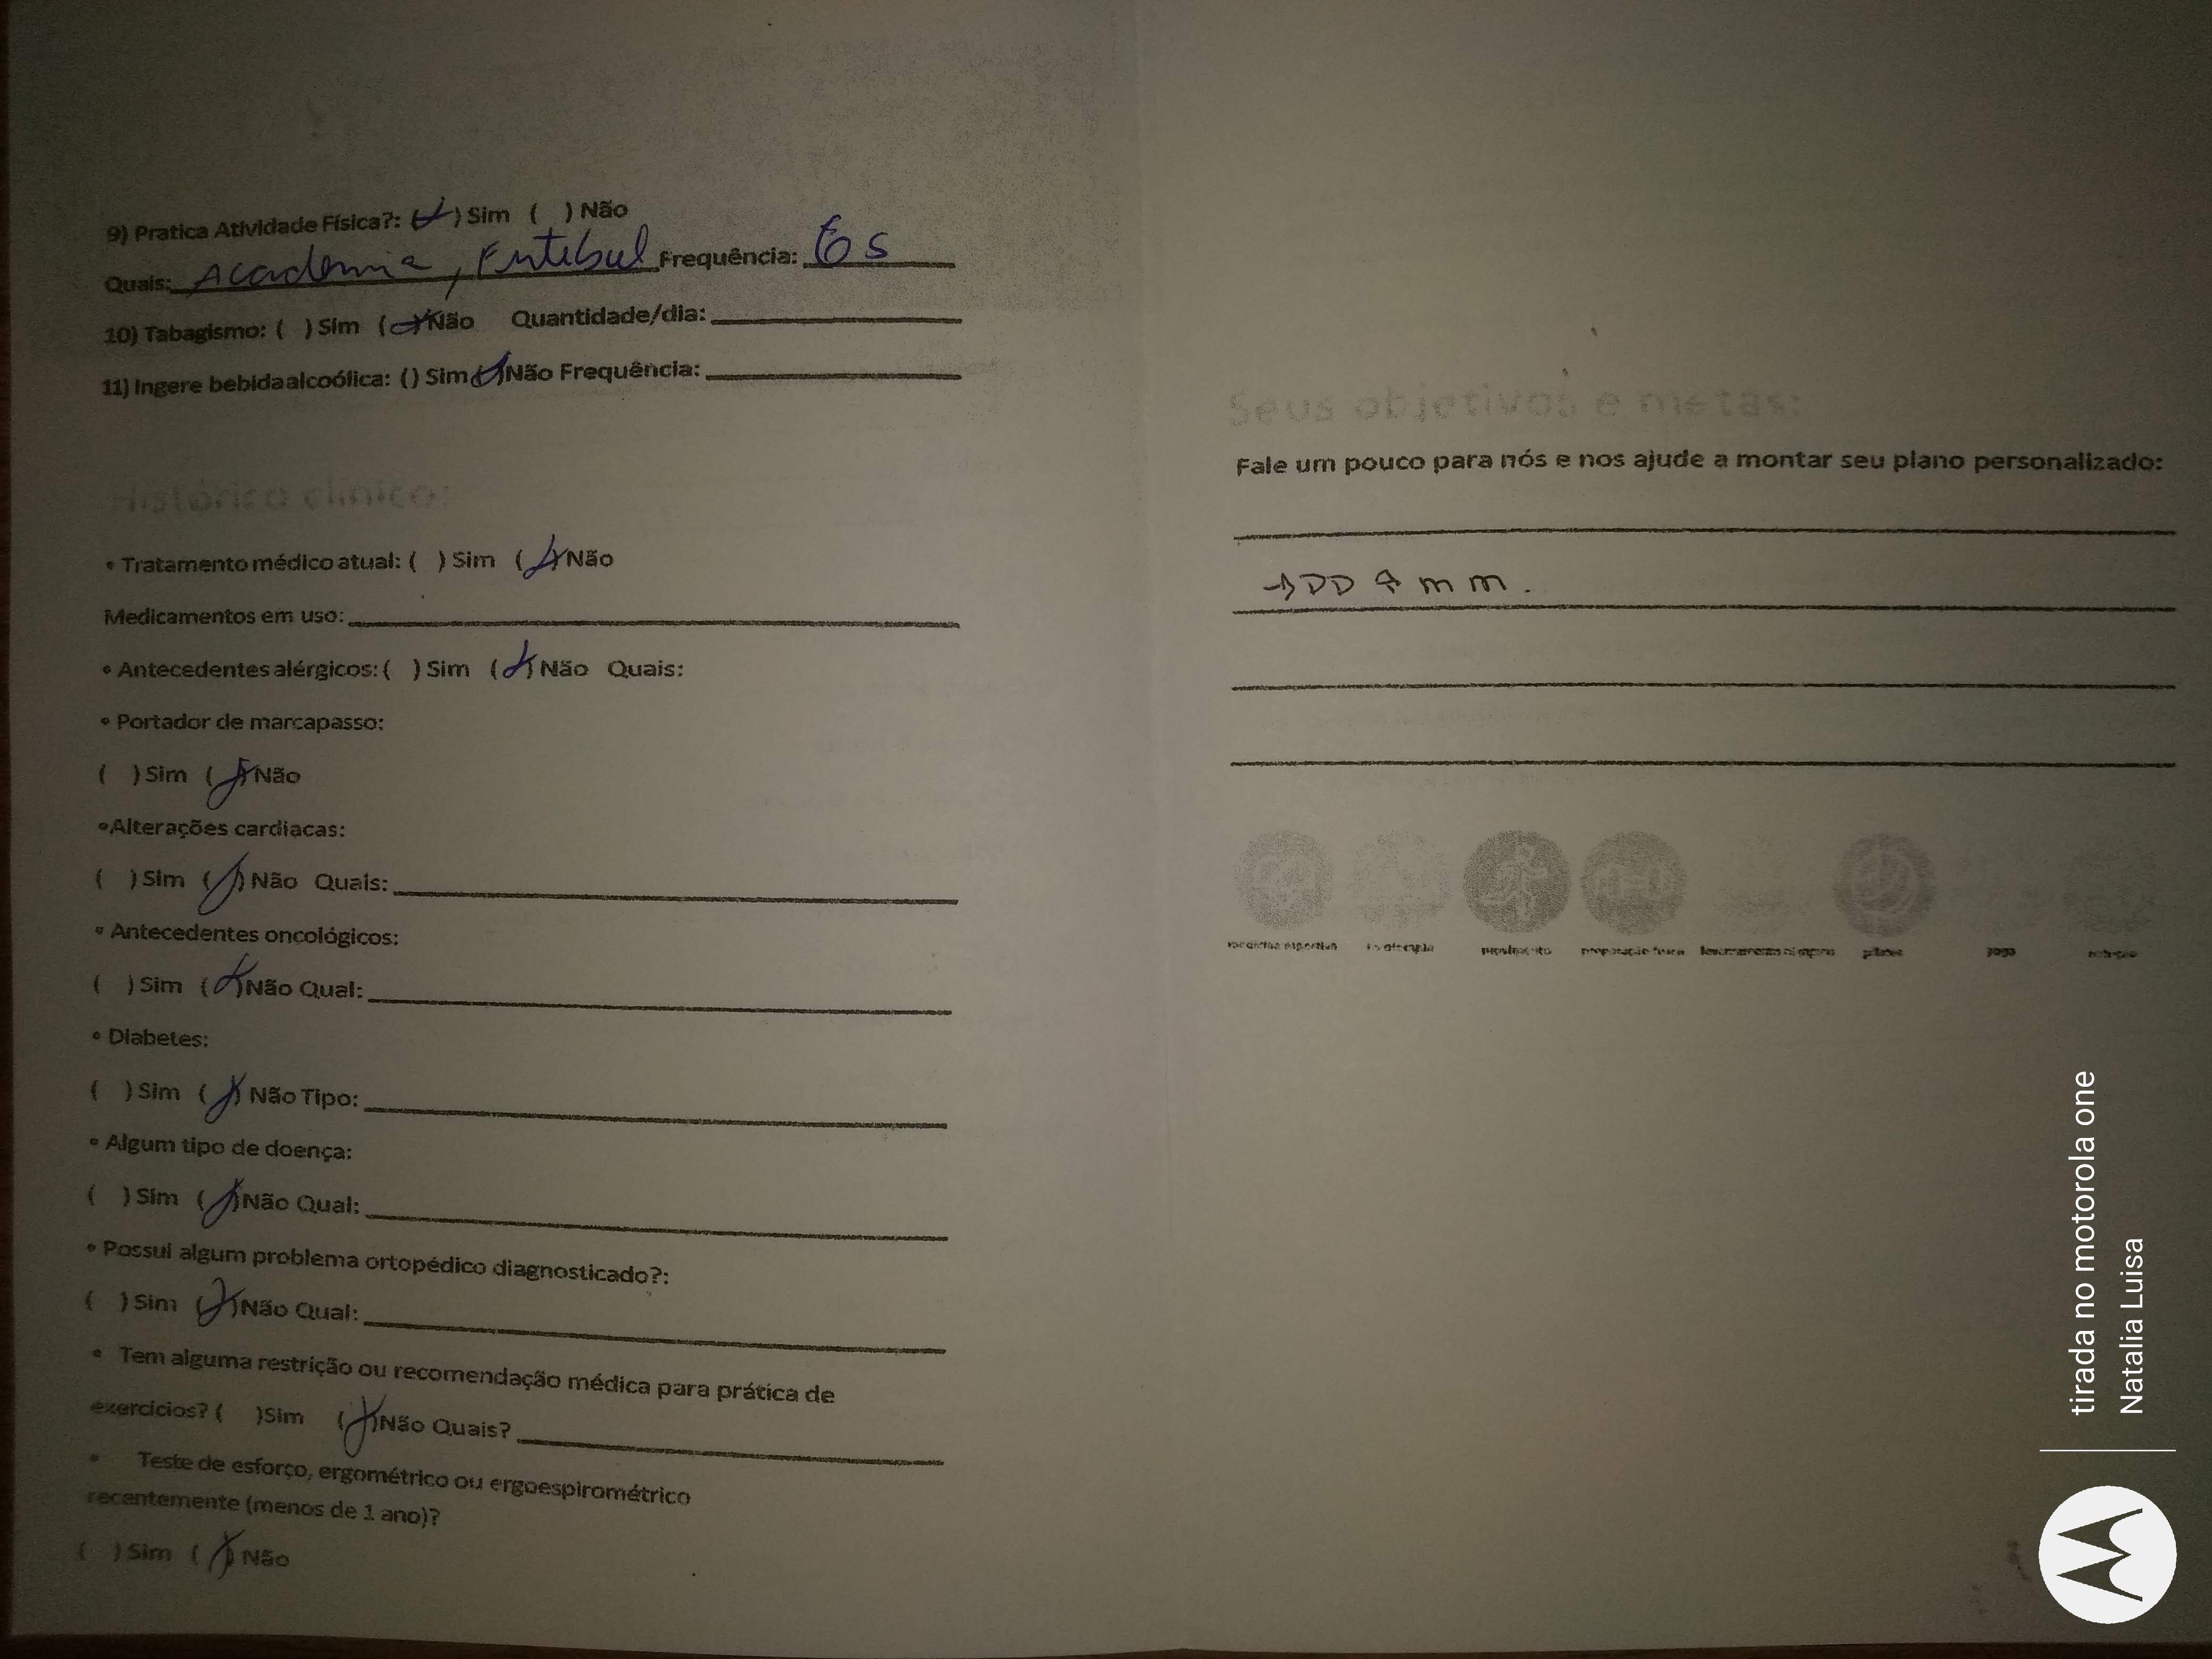 9) Pratica Atividade Física?: (X) Sim ( ) Não
Quais: Academia, Futebol Frequência: 6 s
10) Tabagismo: ( ) Sim (X) Não Quantidade/dia:
11) Ingere bebida alcoólica: () Sim (X) Não Frequência:
Histórico clínico:
• Tratamento médico atual: ( ) Sim (X) Não
Medicamentos em uso:
• Antecedentes alérgicos: ( ) Sim (X) Não Quais:
• Portador de marcapasso:
( ) Sim (X) Não
•Alterações cardíacas:
( ) Sim (X) Não Quais:
• Antecedentes oncológicos:
( ) Sim (X) Não Qual:
• Diabetes:
( ) Sim (X) Não Tipo:
• Algum tipo de doença:
( ) Sim (X) Não Qual:
• Possui algum problema ortopédico diagnosticado?:
( ) Sim (X) Não Qual:
• Tem alguma restrição ou recomendação médica para prática de
exercícios? ( ) Sim (X) Não Quais?
• Teste de esforço, ergométrico ou ergoespirométrico
recentemente (menos de 1 ano)?
( ) Sim (X) Não
Seus objetivos e metas:
Fale um pouco para nós e nos ajude a montar seu plano personalizado:
→ DD A m m .
pilates
yoga
tirada no motorola one
Natalia Luisa